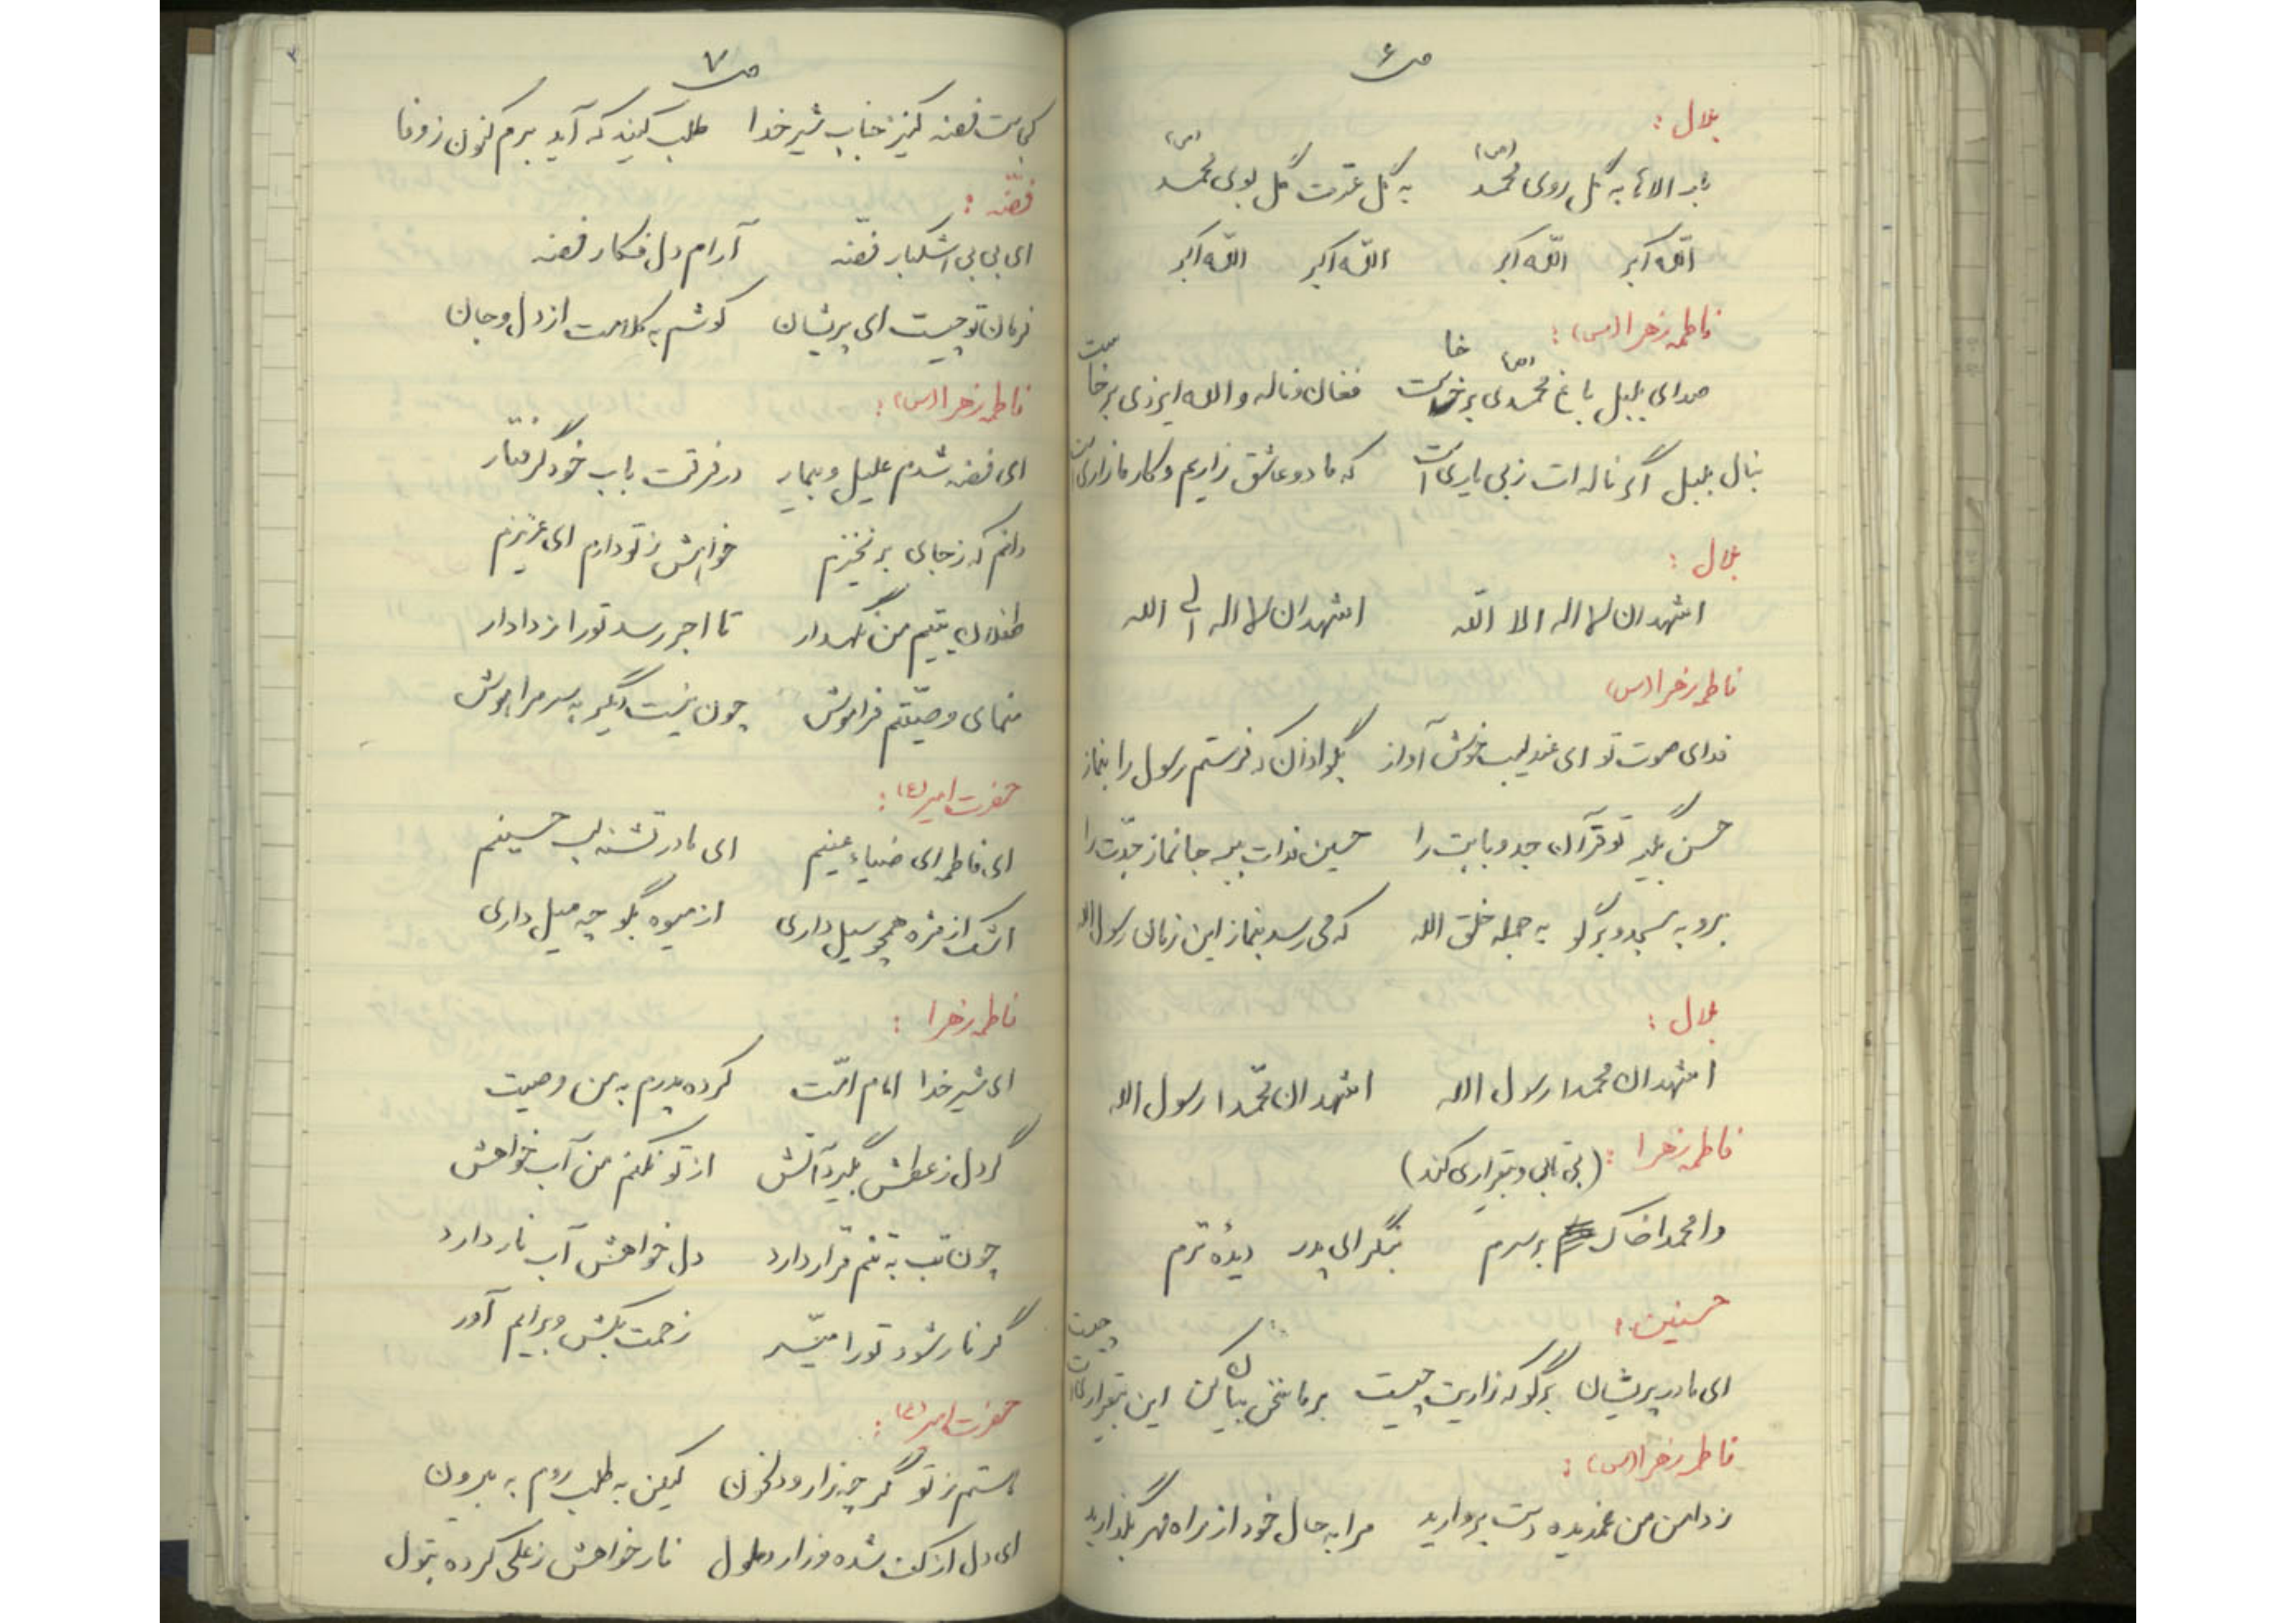 ص ۶
بلال :
به گل روی محمد (ص) به گل عترت گل بوی محمد (ص)
الله اکبر الله اکبر الله اکبر الله اکبر
فاطمه زهرا (س) :
صدای بلبل باغ محمدی (ص) برخاست فغان و ناله والله ایزدی برخاست
بنال بلبل اگر ناله ات ز بی یاری است که ما دو عاشق زاریم و کار ما زاری است
بلال :
اشهد ان لا اله الا الله اشهد ان لا اله الا الله
فاطمه زهرا (س)
فدای صوت تو ای عندلیب خوش آواز بگو اذان که فرستم رسول را بنماز
حسن بگیر تو قرآن جد و بابت را حسین فدات ببر جانماز جدّت را
برو به مسجد و برگو به جمله خلق الله که می رسد بنماز این زمان رسول الله
بلال :
اشهد ان محمدا رسول الله اشهد ان محمّدا رسول الله
فاطمه زهرا : (بی تابی و بیقراری کند)
وا محمدا خاک بر سرم بنگر ای پدر دیدهٔ ترم
حسنین :
ای مادر پریشان برگو که زاریت چیست بر ما سخن بیان کن این بیقراریت چیست
فاطمه زهرا (س) :
ز دامن من غمدیده دست بردارید مرا به حال خود از راه مهر بگذارید
ص ۷
کجاست فضه کنیز جناب شیر خدا طلب کنید که آید برم کنون ز وفا
فضّه :
ای بی بی اشکبار فضّه آرام دل فکار فضه
فرمان تو چیست ای پریشان گوشم به کلامت از دل و جان
فاطمه زهرا (س) :
ای فضه شدم علیل و بیمار در فرقت باب خود گرفتار
دانم که ز جای برنخیزم خواهش ز تو دارم ای عزیزم
طفلان یتیم من نگهدار تا اجر رسد تو را ز دادار
منمای وصیّتم فراموش چون نیست دگر به سر مرا هوش
حضرت امیر (ع) :
ای فاطمه ای ضیاء عینم ای مادر تشنه لب حسینم
اشک از مژه همچو سیل داری از میوه بگو چه میل داری
فاطمه زهرا :
ای شیر خدا امام امّت کرده پدرم به من وصیت
گر دل ز عطش بگیرد آتش از تو نکنم من آب خواهش
چون تب به تنم قرار دارد دل خواهش آب نار دارد
گر نار شود تو را میّسر زحمت بکش و برایم آور
حضرت امیر (ع) :
هستم ز تو گرچه زار و دلخون لیکن به طلب روم به بیرون
ای دل از کف شده و زار و ملول نار خواهش ز علی کرده بتول